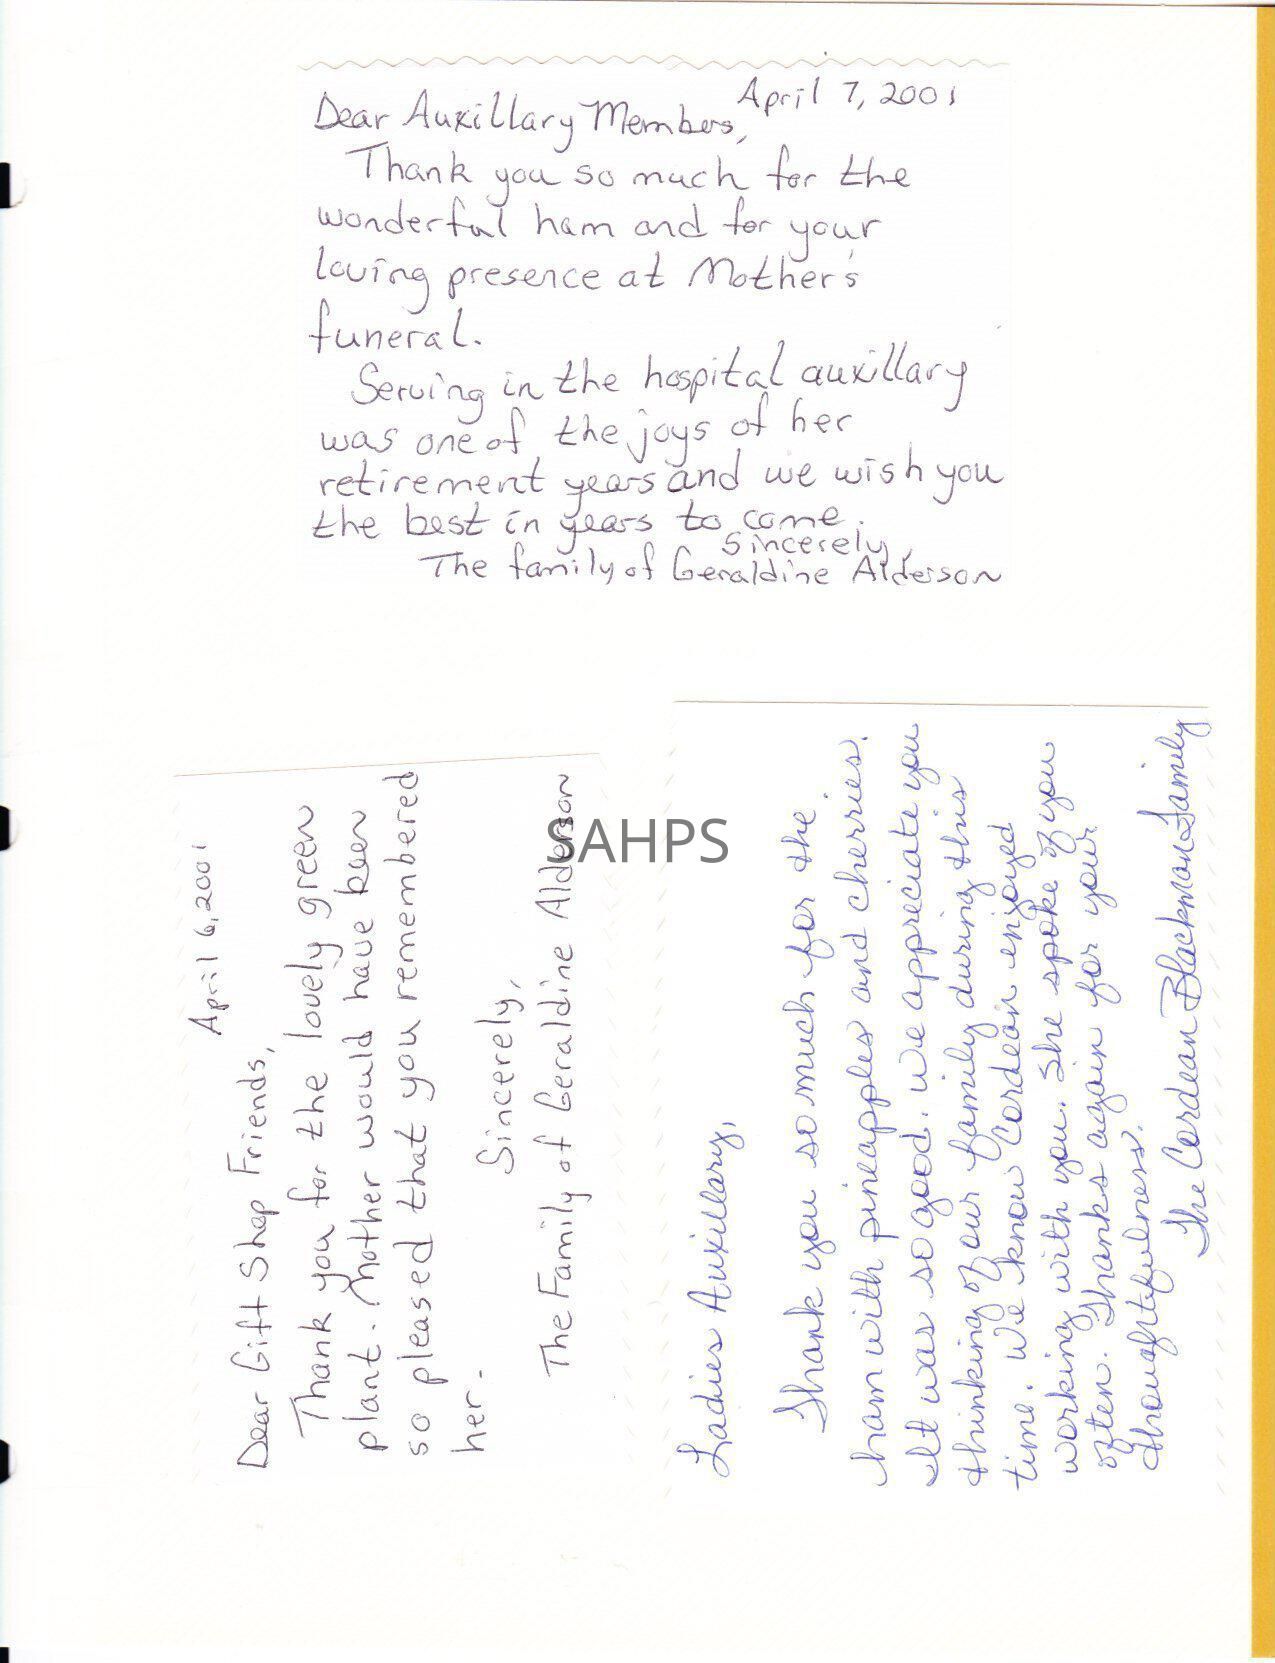 April 7, 2001
Dear Auxillary Members,
Thank you so much for the
wonderful ham and for your
loving presence at Mother's
funeral.
Serving in the hospital auxillary
was one of the joys of her
retirement years and we wish you
the best in years to come.
Sincerely,
The family of Geraldine Alderson
April 6, 2001
Dear Gift Shop Friends,
Thank you for the lovely green
plant. Mother would have been
so pleased that you remembered
her.
Sincerely,
The Family of Geraldine Alderson
SAHPS
Ladies Auxillary,
Thank you so much for the
ham with pineapples and cherries.
It was so good. We appreciate you
thinking of our family during this
time. We know Cordean enjoyed
working with you. She spoke of you
often. Thanks again for your
thoughtfulness.
The Cordean Blackmon Family